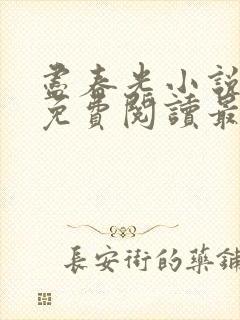 盡春光小說
免費閱讀最
長安街的藥鋪